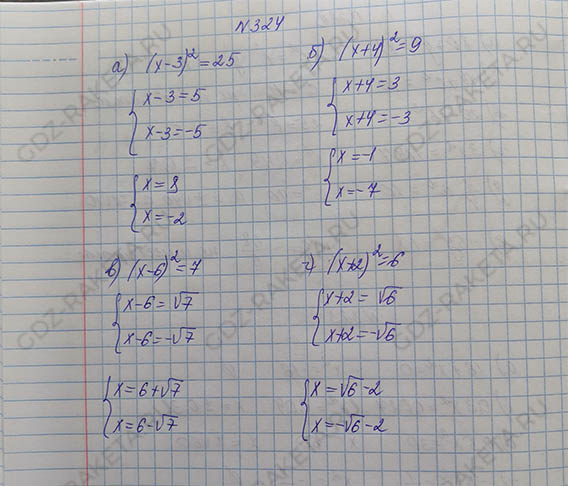 N324
а) (x-3)²=25
{x-3=5
x-3=-5
{x=8
x=-2
б) (x+4)²=9
{x+4=3
x+4=-3
{x=-1
x=-7
в) (x-6)²=7
{x-6=√7
x-6=-√7
{x=6+√7
x=6-√7
г) (x+2)²=6
{x+2=√6
x+2=-√6
{x=√6-2
x=-√6-2
GDZ-RAKETA.RU
GDZ-RAKETA.RU
GDZ-RAKETA.RU
GDZ-RAKETA.RU
GDZ-RAKETA.RU
GDZ-RAKETA.RU